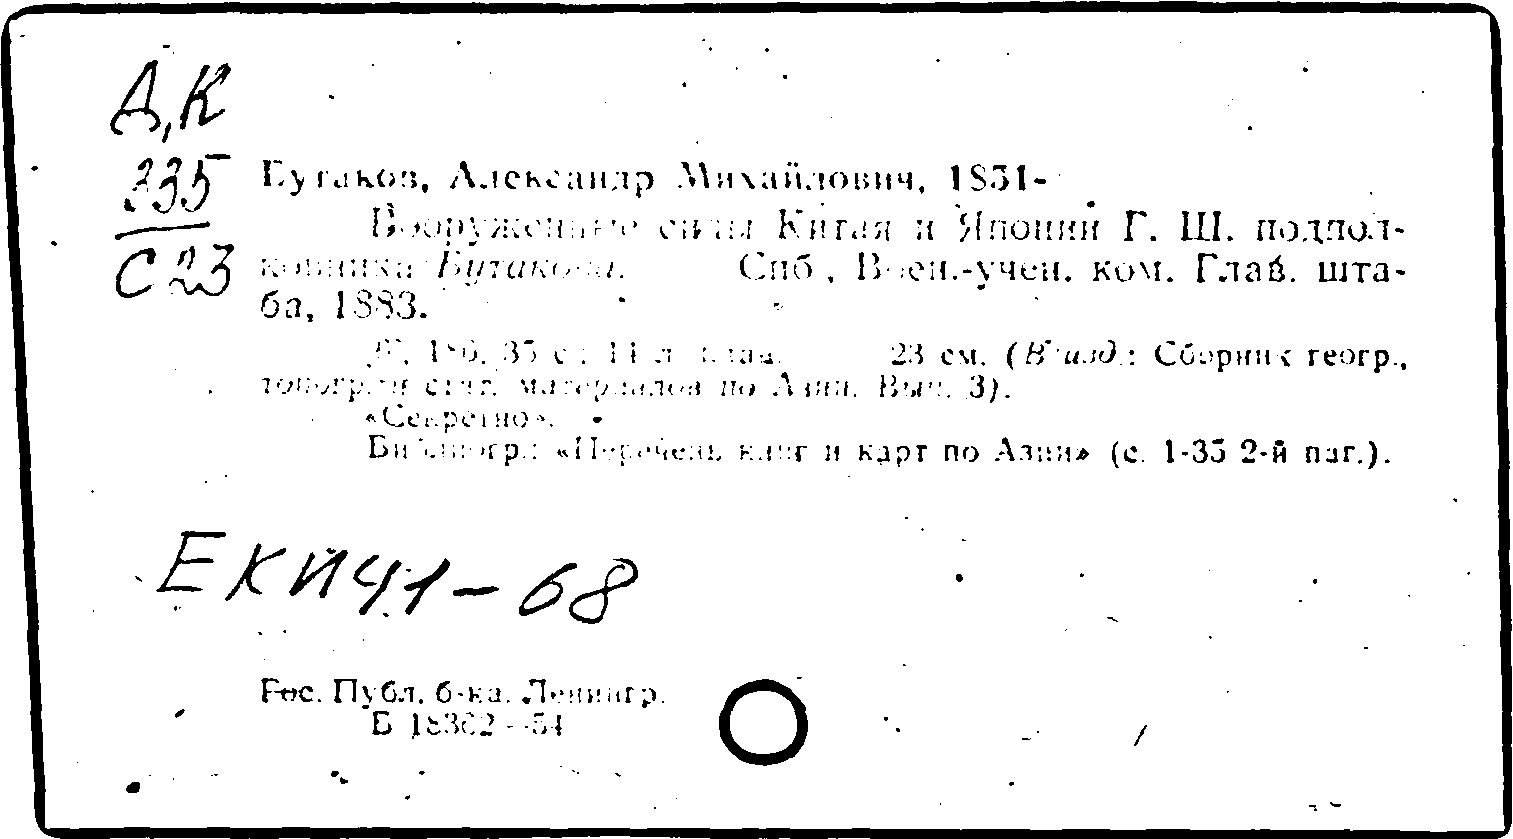 Д,К
335
С23
Бутаков, Александр Михайлович, 1851-
Вооруженные силы Китая и Японии Г. Ш. подпол-
ковника Бутакова. Спб., Воен.-учен. ком. Глав. шта-
ба, 1883.
186, 35 с.; 11 л. 23 см. (В изд.: Сборник геогр.,
топогр. и стат. материалов по Азии. Вып. 3).
«Секретно».
Библиогр.: «Перечень книг и карт по Азии» (с. 1-35 2-й паг.).
ЕКЙ41-68
Гос. Публ. б-ка. Ленингр.
Б 18362—54